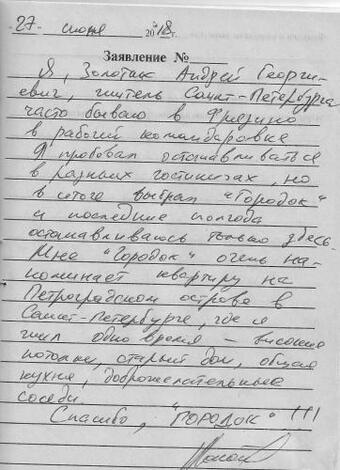 27. июня 2018г.
Заявление №
Я, Золотых Андрей Георги-
евич, житель Санкт-Петербурга
часто бываю в Фрязино
в рабочей командировке
Я пробовал останавливаться
в разных гостиницах, но
в итоге выбрал "Городок"
и последние полгода
останавливаюсь только здесь.
Мне "Городок" очень на-
поминает квартиру на
Петроградском острове в
Санкт-Петербурге, где я
жил одно время – высокие
потолки, старый дом, общая
кухня, доброжелательные
соседи.
Спасибо, "ГОРОДОК" !!!